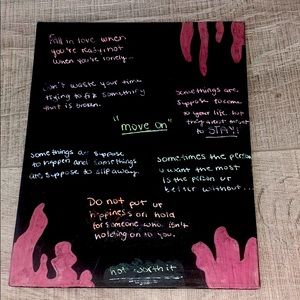 Fall in love when
you're ready, not
when you're lonely...
Don't waste your time
trying to fix something
that is broken.
Some things are
suppose to come
to your life, but
they're not meant
to STAY!
"move on"
Some things are suppose
to happen and some things
are, suppose to slip away.
Sometimes the person
u want the most
is the person ur
better without...
Do not put ur
happiness on hold
for someone who isn't
holding on to you.
not worth it